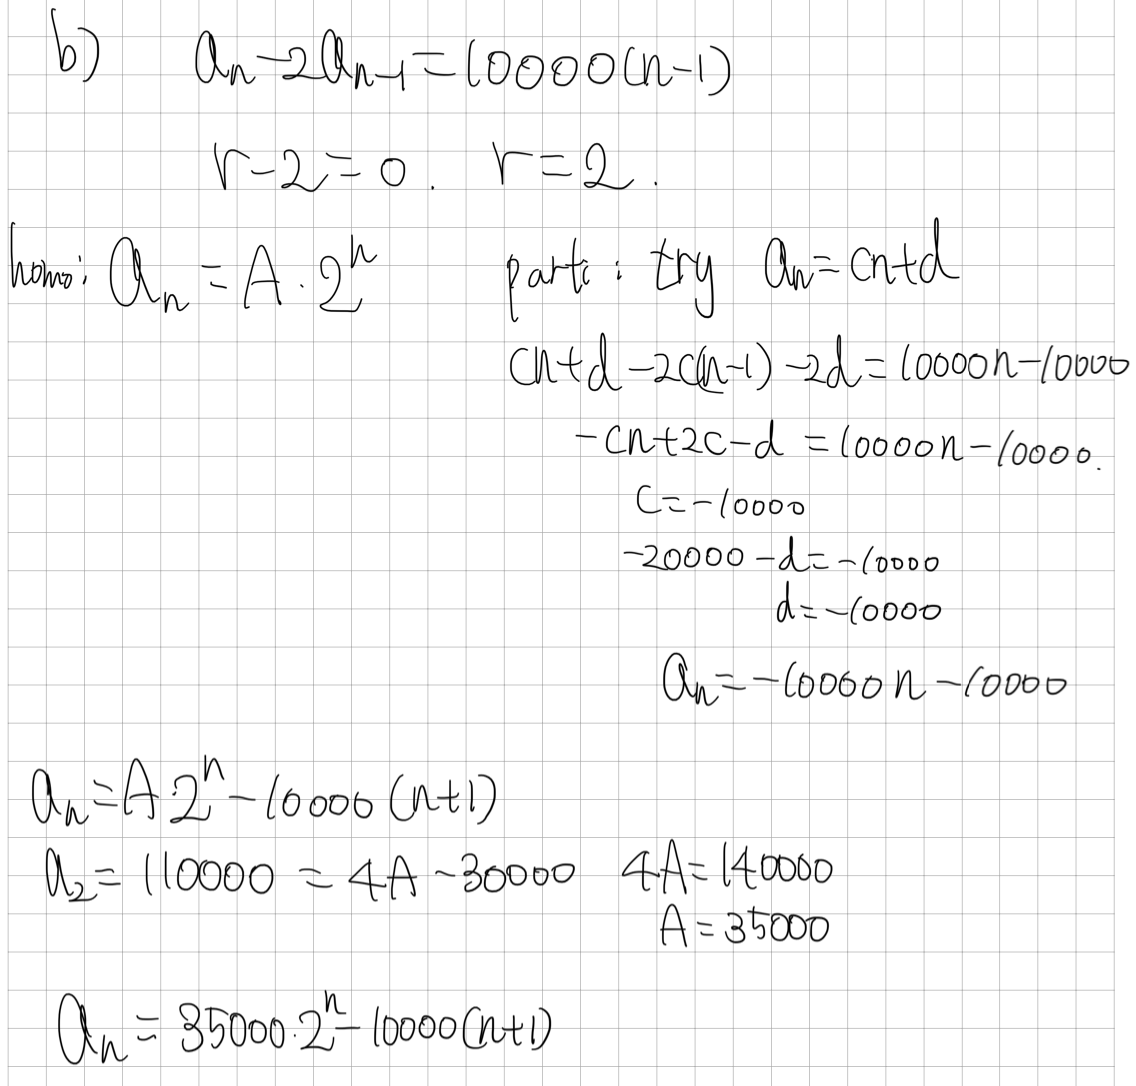 b) aₙ-2aₙ₋₁=10000(n-1)
r-2=0. r=2.
homo: aₙ=A·2ⁿ partc: try aₙ=cn+d
cn+d-2c(n-1)-2d=10000n-10000
-cn+2c-d=10000n-10000.
c=-10000
-20000-d=-10000
d=-10000
aₙ=-10000n-10000
aₙ=A·2ⁿ-10000(n+1)
a₂=110000=4A-30000 4A=140000
A=35000
aₙ=35000·2ⁿ-10000(n+1)